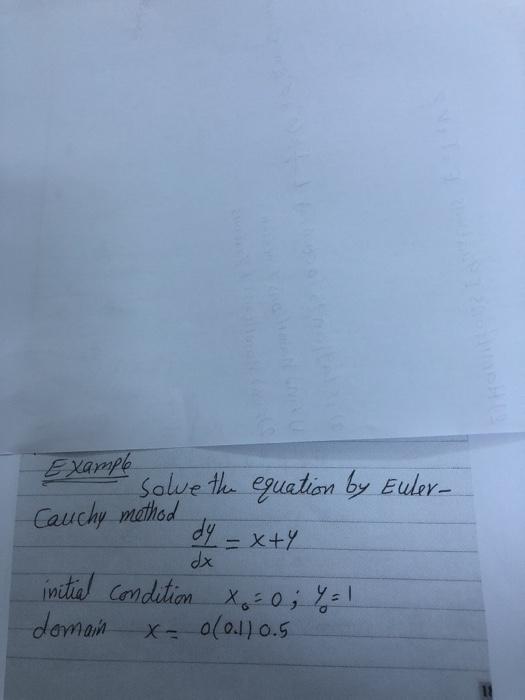 Example
Solve the equation by Euler-
Cauchy method
dy/dx = x+y
initial condition x₀ = 0 ; y₀ = 1
domain x = 0(0.1)0.5